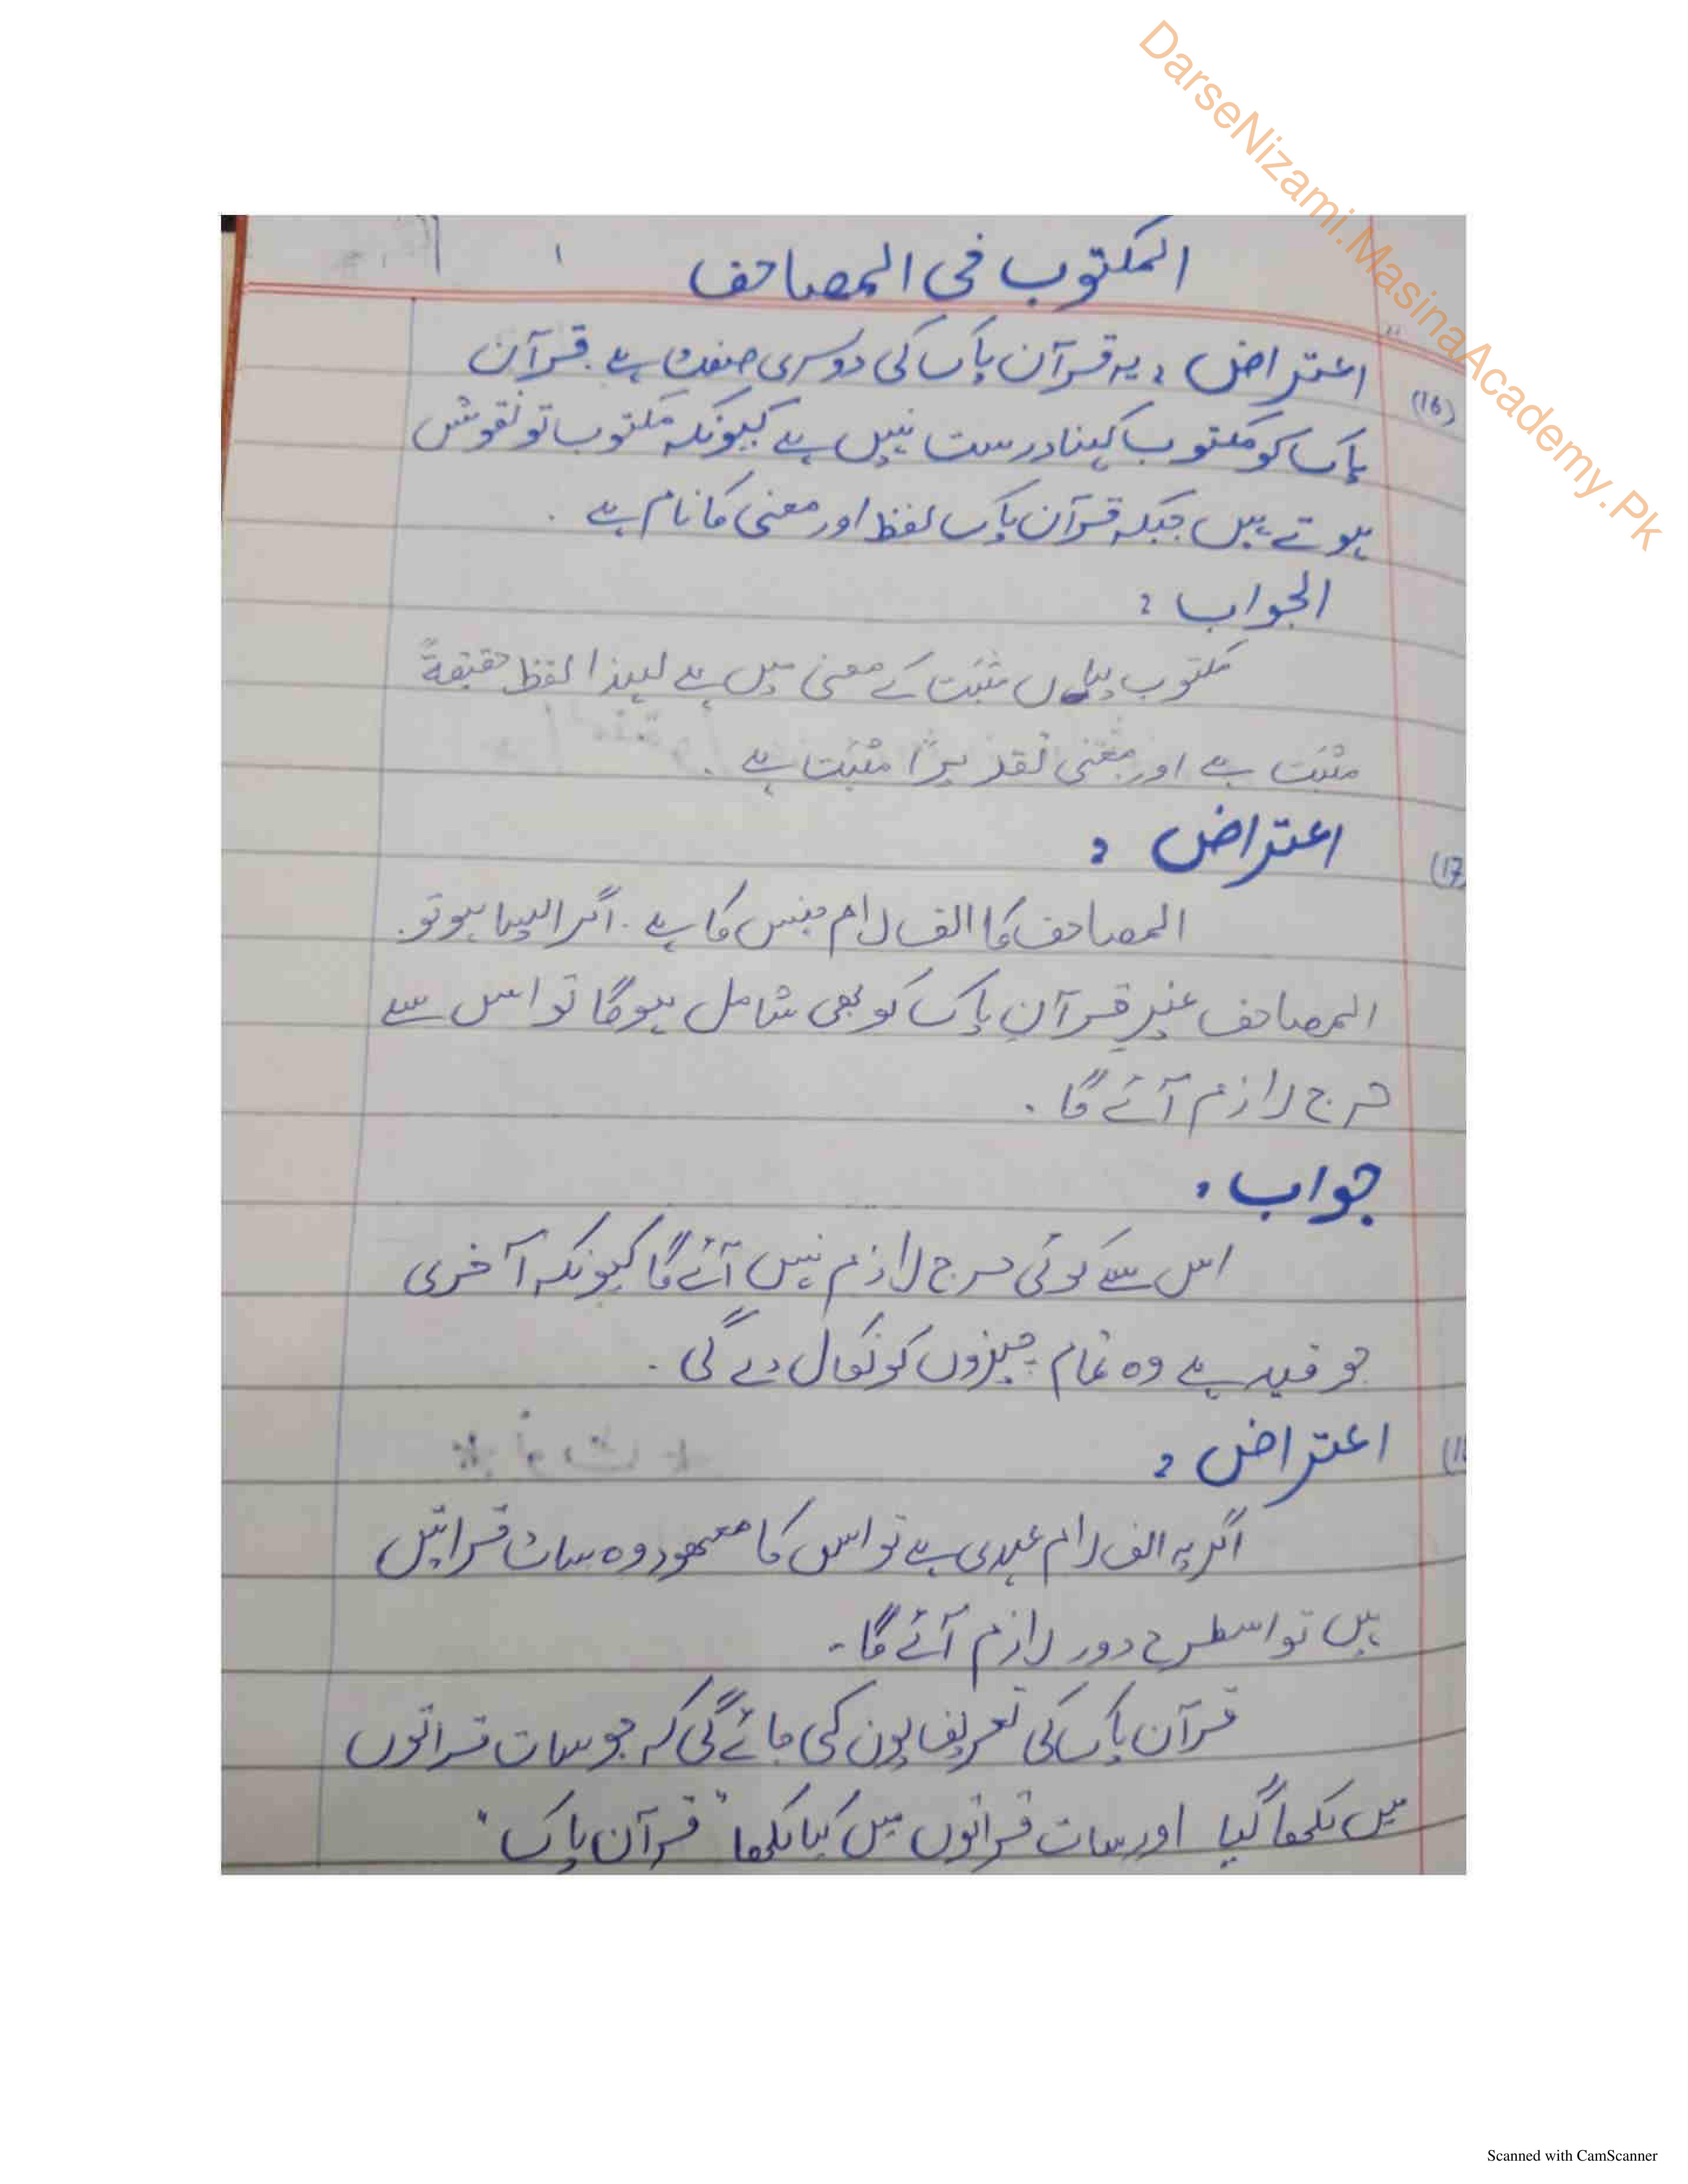 DarseNizami.MasinaAcademy.Pk
المکتوب فی المصاحف
(16) اعتراض : یہ قرآن پاک کی دوسری صفت ہے ۔ قرآن
پاک کو مکتوب کہنا درست نہیں ہے کیونکہ مکتوب تو نقوش
ہوتے ہیں جبکہ قرآن پاک لفظ اور معنی کا نام ہے ۔
الجواب :
مکتوب یہاں مثبت کے معنی میں ہے لہذا لفظ حقیقۃً
مثبت ہے اور معنی تقدیرًا مثبت ہے ۔
(17) اعتراض :
المصاحف کا الف لام جنس کا ہے ۔ اگر ایسا ہو تو
المصاحف غیرِ قرآنِ پاک کو بھی شامل ہوگا تو اس سے
حرج لازم آئے گا ۔
جواب :
اس سے کوئی حرج لازم نہیں آئے گا کیونکہ آخری
جو قید ہے وہ تمام چیزوں کو نکال دے گی ۔
اعتراض :
اگر یہ الف لام عہدی ہے تو اس کا معھود وہ سات قراتیں
ہیں تو اسطرح دور لازم آئے گا ۔
قرآن پاک کی تعریف یوں کی جائے گی کہ جو سات قراتوں
میں لکھا گیا اور سات قراتوں میں کیا لکھا "قرآن پاک"
Scanned with CamScanner